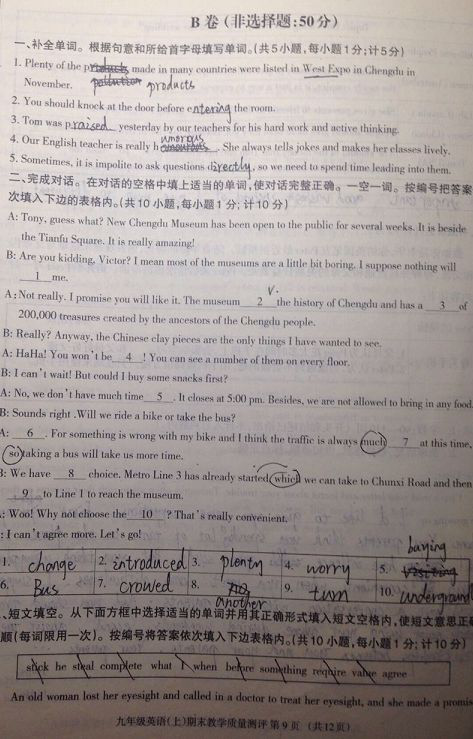 B 卷 (非选择题:50分)
一、补全单词。根据句意和所给首字母填写单词。(共5小题,每小题1分;计5分)
1. Plenty of the p made in many countries were listed in West Expo in Chengdu in
November. pollution products
2. You should knock at the door before entering the room.
3. Tom was praised yesterday by our teachers for his hard work and active thinking.
umorous
4. Our English teacher is really h. She always tells jokes and makes her classes lively.
5. Sometimes, it is impolite to ask questions directly, so we need to spend time leading into them.
二、完成对话。在对话的空格中填上适当的单词,使对话完整正确。一空一词。按编号把答案
次填入下边的表格内。(共10小题,每小题1分;计10分)
A: Tony, guess what? New Chengdu Museum has been open to the public for several weeks. It is beside
the Tianfu Square. It is really amazing!
B: Are you kidding, Victor? I mean most of the museums are a little bit boring. I suppose nothing will
1 me.
V.
A: Not really. I promise you will like it. The museum 2 the history of Chengdu and has a 3 of
200,000 treasures created by the ancestors of the Chengdu people.
B: Really? Anyway, the Chinese clay pieces are the only things I have wanted to see.
A: HaHa! You won't be 4 ! You can see a number of them on every floor.
B: I can't wait! But could I buy some snacks first?
A: No, we don't have much time 5 . It closes at 5:00 pm. Besides, we are not allowed to bring in any food.
B: Sounds right .Will we ride a bike or take the bus?
A: 6 . For something is wrong with my bike and I think the traffic is always much 7 at this time,
so taking a bus will take us more time.
B: We have 8 choice. Metro Line 3 has already started which we can take to Chunxi Road and then
9 to Line 1 to reach the museum.
: Woo! Why not choose the 10 ? That's really convenient.
: I can't agree more. Let's go!
buying
1. change 2. introduced 3. plenty 4. worry 5. visiting
6. Bus 7. crowed 8. no 9. turn 10. underground
another
、短文填空。从下面方框中选择适当的单词并用其正确形式填入短文空格内,使短文意思正
顺(每词限用一次)。按编号将答案依次填入下边表格内。(共10小题,每小题1分;计10分)
stick he steal complete what I when before something require value agree
An old woman lost her eyesight and called in a doctor to treat her eyesight, and she made a promis
九年级英语(上)期末教学质量测评 第9页 (共12页)